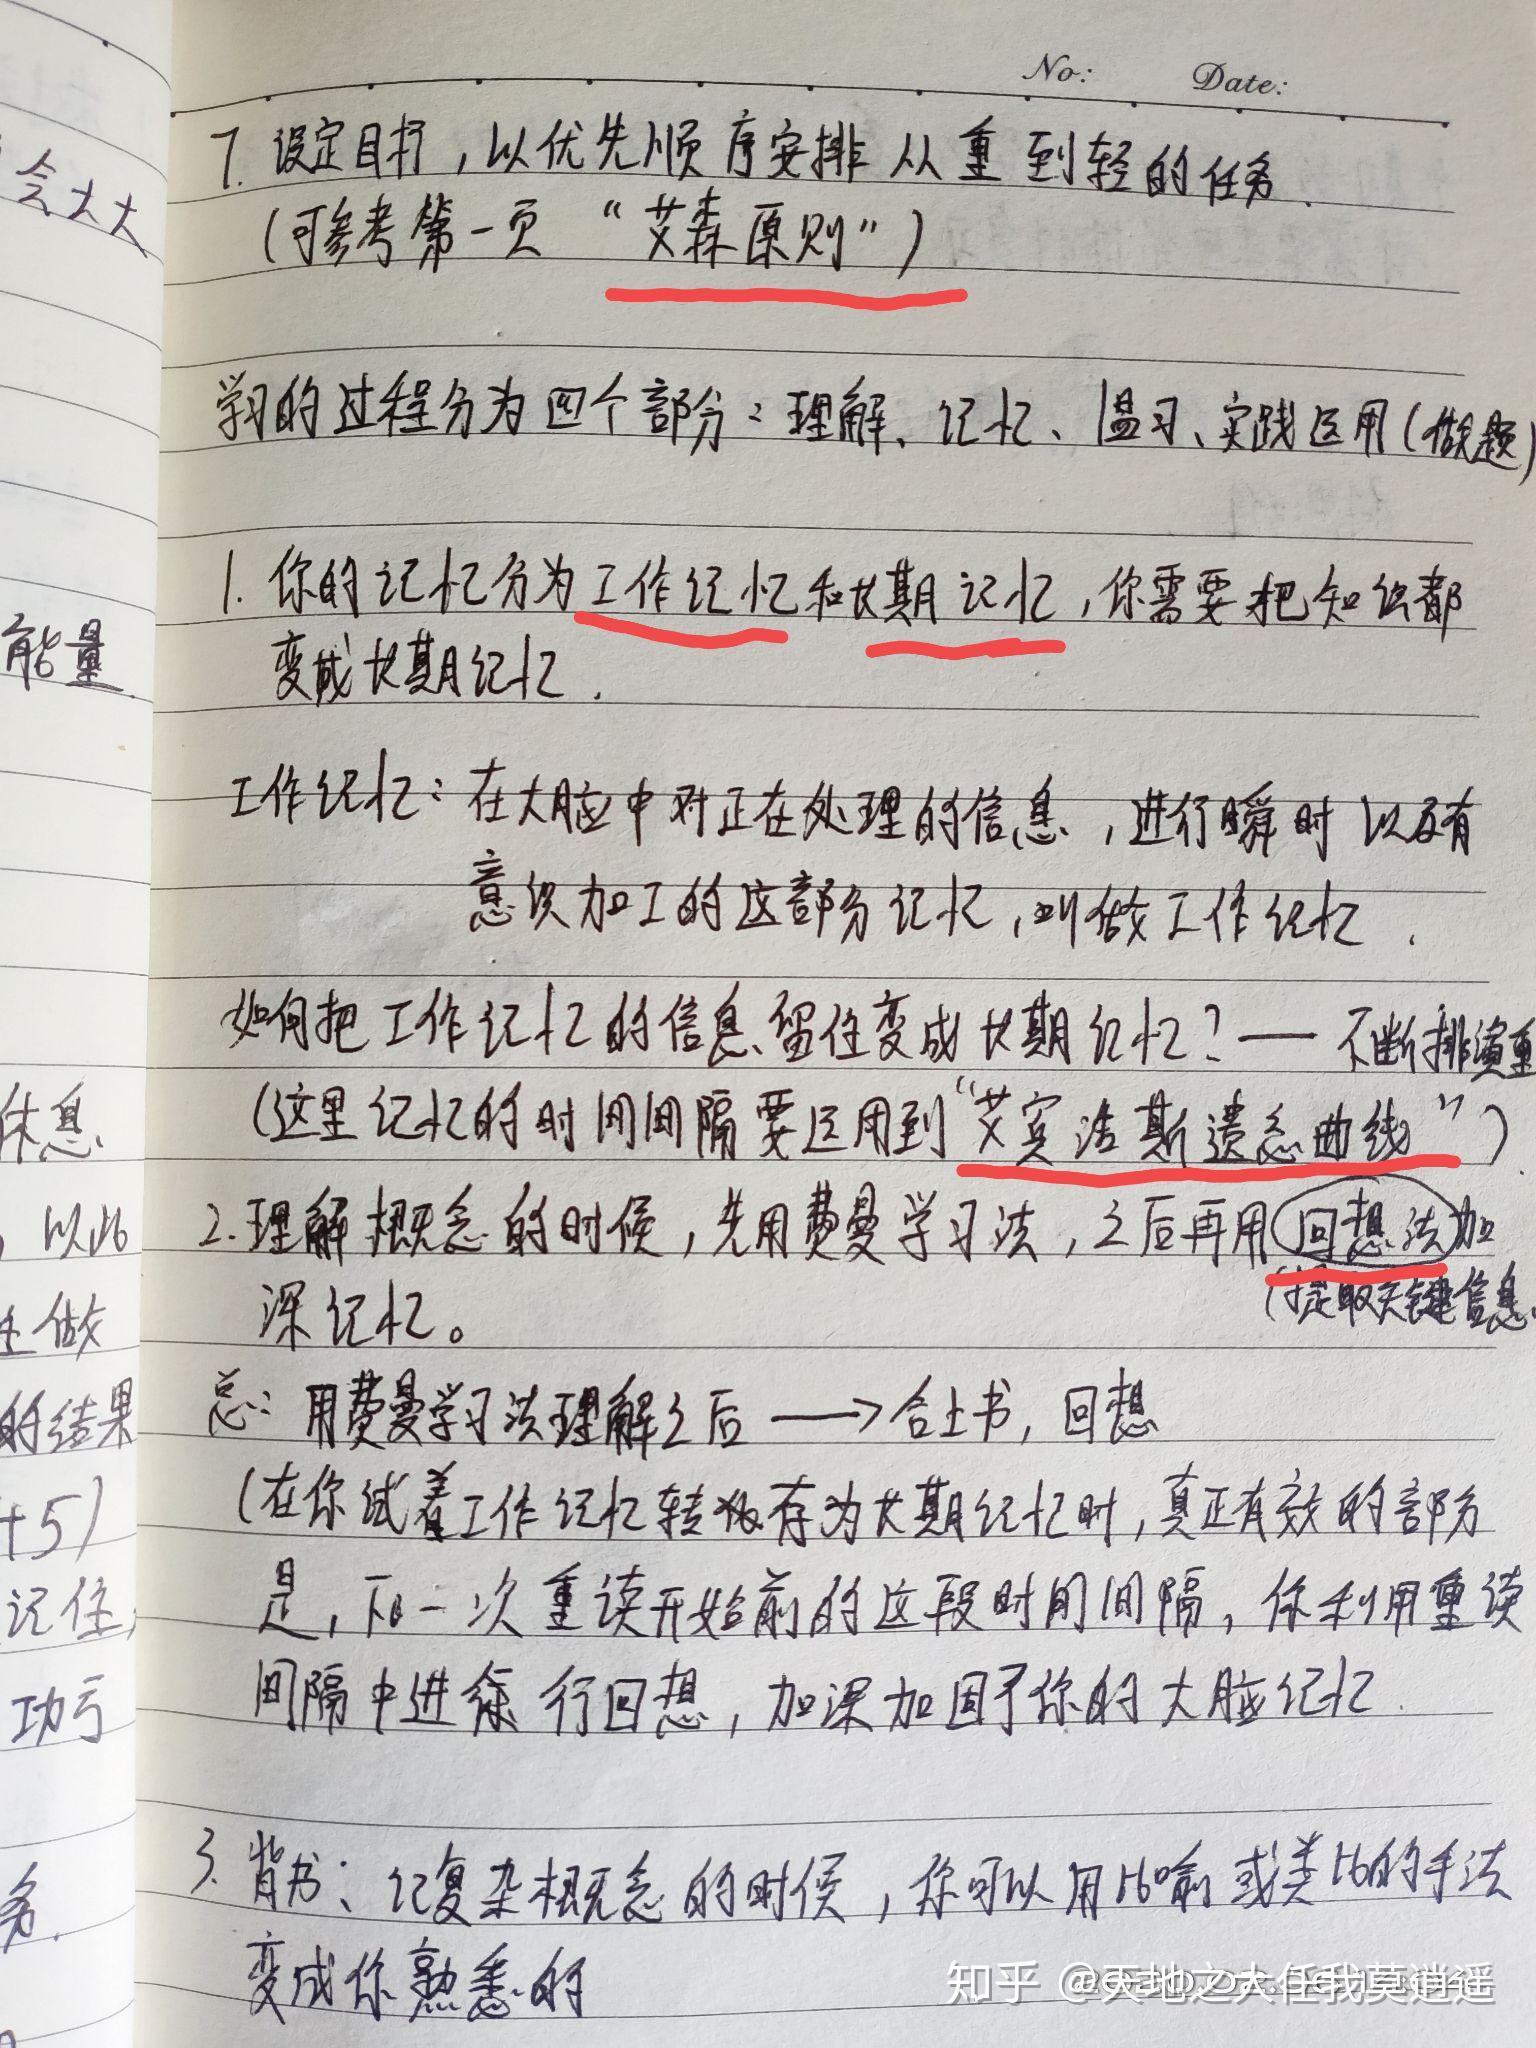 No: Date:
7. 设定目标，以优先顺序安排从重到轻的任务.
(可参考第一页“艾森原则”)
学习的过程分为四个部分：理解、记忆、温习、实践运用(做题)
1. 你的记忆分为工作记忆和长期记忆，你需要把知识都
变成长期记忆.
工作记忆：在大脑中对正在处理的信息，进行瞬时以及有
意识加工的这部分记忆，叫做工作记忆.
如何把工作记忆的信息留住变成长期记忆？—— 不断排演重
(这里记忆的时间间隔要运用到“艾宾浩斯遗忘曲线”).
2. 理解概念的时候，先用费曼学习法，之后再用回想法加
(提取关键信息
深记忆。
总：用费曼学习法理解之后 ——> 合上书，回想
(在你试着工作记忆转存为长期记忆时，真正有效的部分
是，下一次重读开始前的这段时间间隔，你利用重读
间隔中进行回想，加深加固了你的大脑记忆.
3. 背书、记复杂概念的时候，你可以用比喻或类比的手法
变成你熟悉的
会大大
能量.
休息
，以此
做
的结果
+5)
记住,
功亏
务.
知乎 @天地之大任我莫逍遥